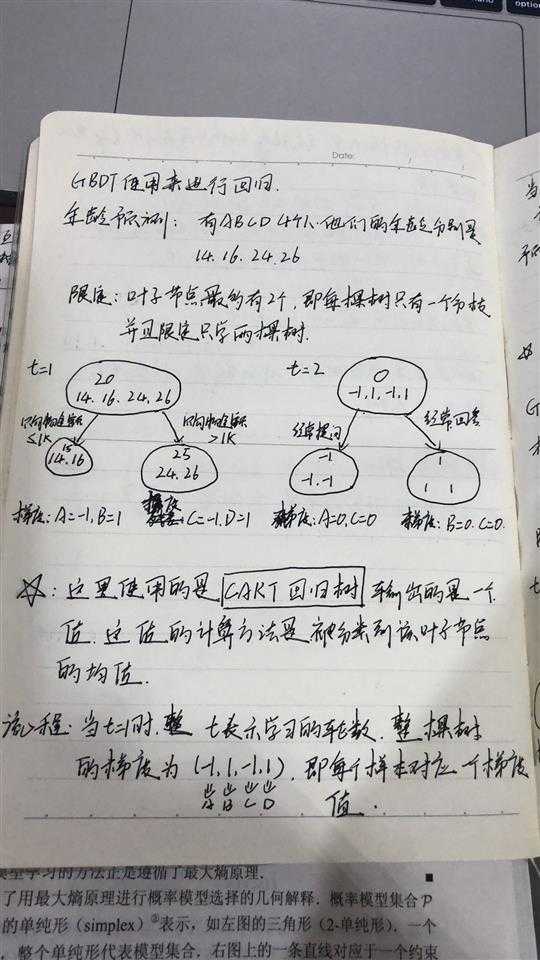 option
Date:
GBDT使用来进行回归.
年龄预测: 有ABCD 4个人.他们的年龄分别是
14. 16. 24. 26
限定: 叶子节点最多有2个, 即每棵树只有一个分枝
并且限定只学两棵树.
t=1
20
14. 16. 24. 26
≤1K
>1K
15
14. 16
25
24. 26
梯度: A=-1, B=1
梯度: C=-1, D=1
t=2
0
-1, 1, -1, 1
经常提问
经常回答
-1
-1, -1
1
1 1
梯度: A=0, C=0
梯度: B=0. C=0.
☆: 这里使用的是 CART回归树 输出的是一个
值. 这值的计算方法是被分类到该叶子节点
的均值.
流程: 当t=1时. t表示学习的轮数. 整棵树
的梯度为 (-1, 1, -1, 1). 即每个样本对应一个梯度
A B C D
值.
模型学习的方法正是遵循了最大熵原理.
了用最大熵原理进行概率模型选择的几何解释. 概率模型集合 P
的单纯形 (simplex) ②表示, 如左图的三角形 (2-单纯形). 一个
整个单纯形代表模型集合. 右图上的一条直线对应于一个约束